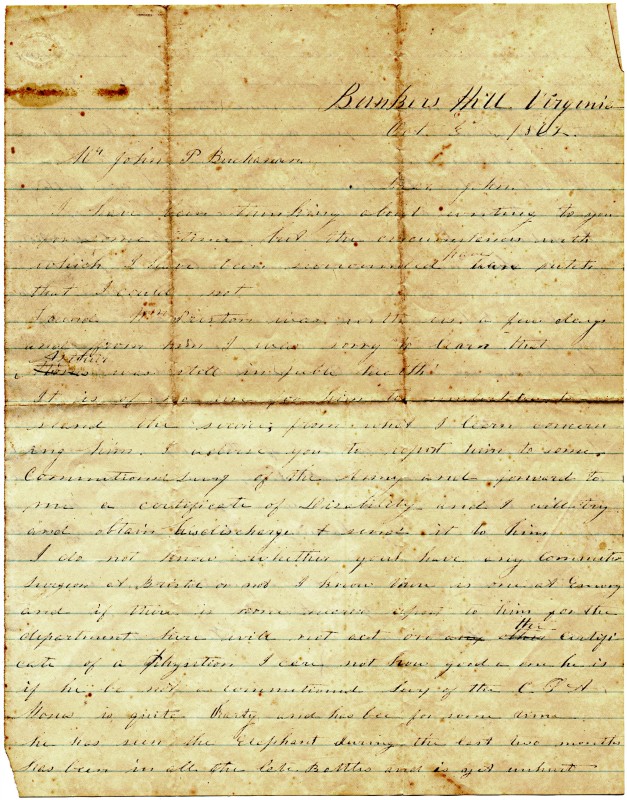 Bunkers Hill Virginia
Oct. 1862.
Mr John P Buchanan
Dear John
I have been thinking about writing to you
for some time but the circumstances with
which I have been surrounded have such
that I could not
Preston was with us a few days
and from him I was sorry to learn that
was still in feeble health
It is of no use for him to undertake to
stand the service, from what I learn concern
ing him. I advise you to report him to some
Commitional Surg of the Army and forward to
me a certificate of Disability and I will try
and obtain his discharge & send it to him
I do not know whether you have any Commitio
Surgeon at Bristol or not I know there is one at Emory
and if there is none nearer report to him for the
department here will not act on any the Certifi
cate of a Physition I care not how good a one he is
if he be not a commitional Surg of the C. S. A.
is quite Harty and has bee for some time
he has seen the Elephant during the last two months
has been in all the late Battles and is yet unhurt